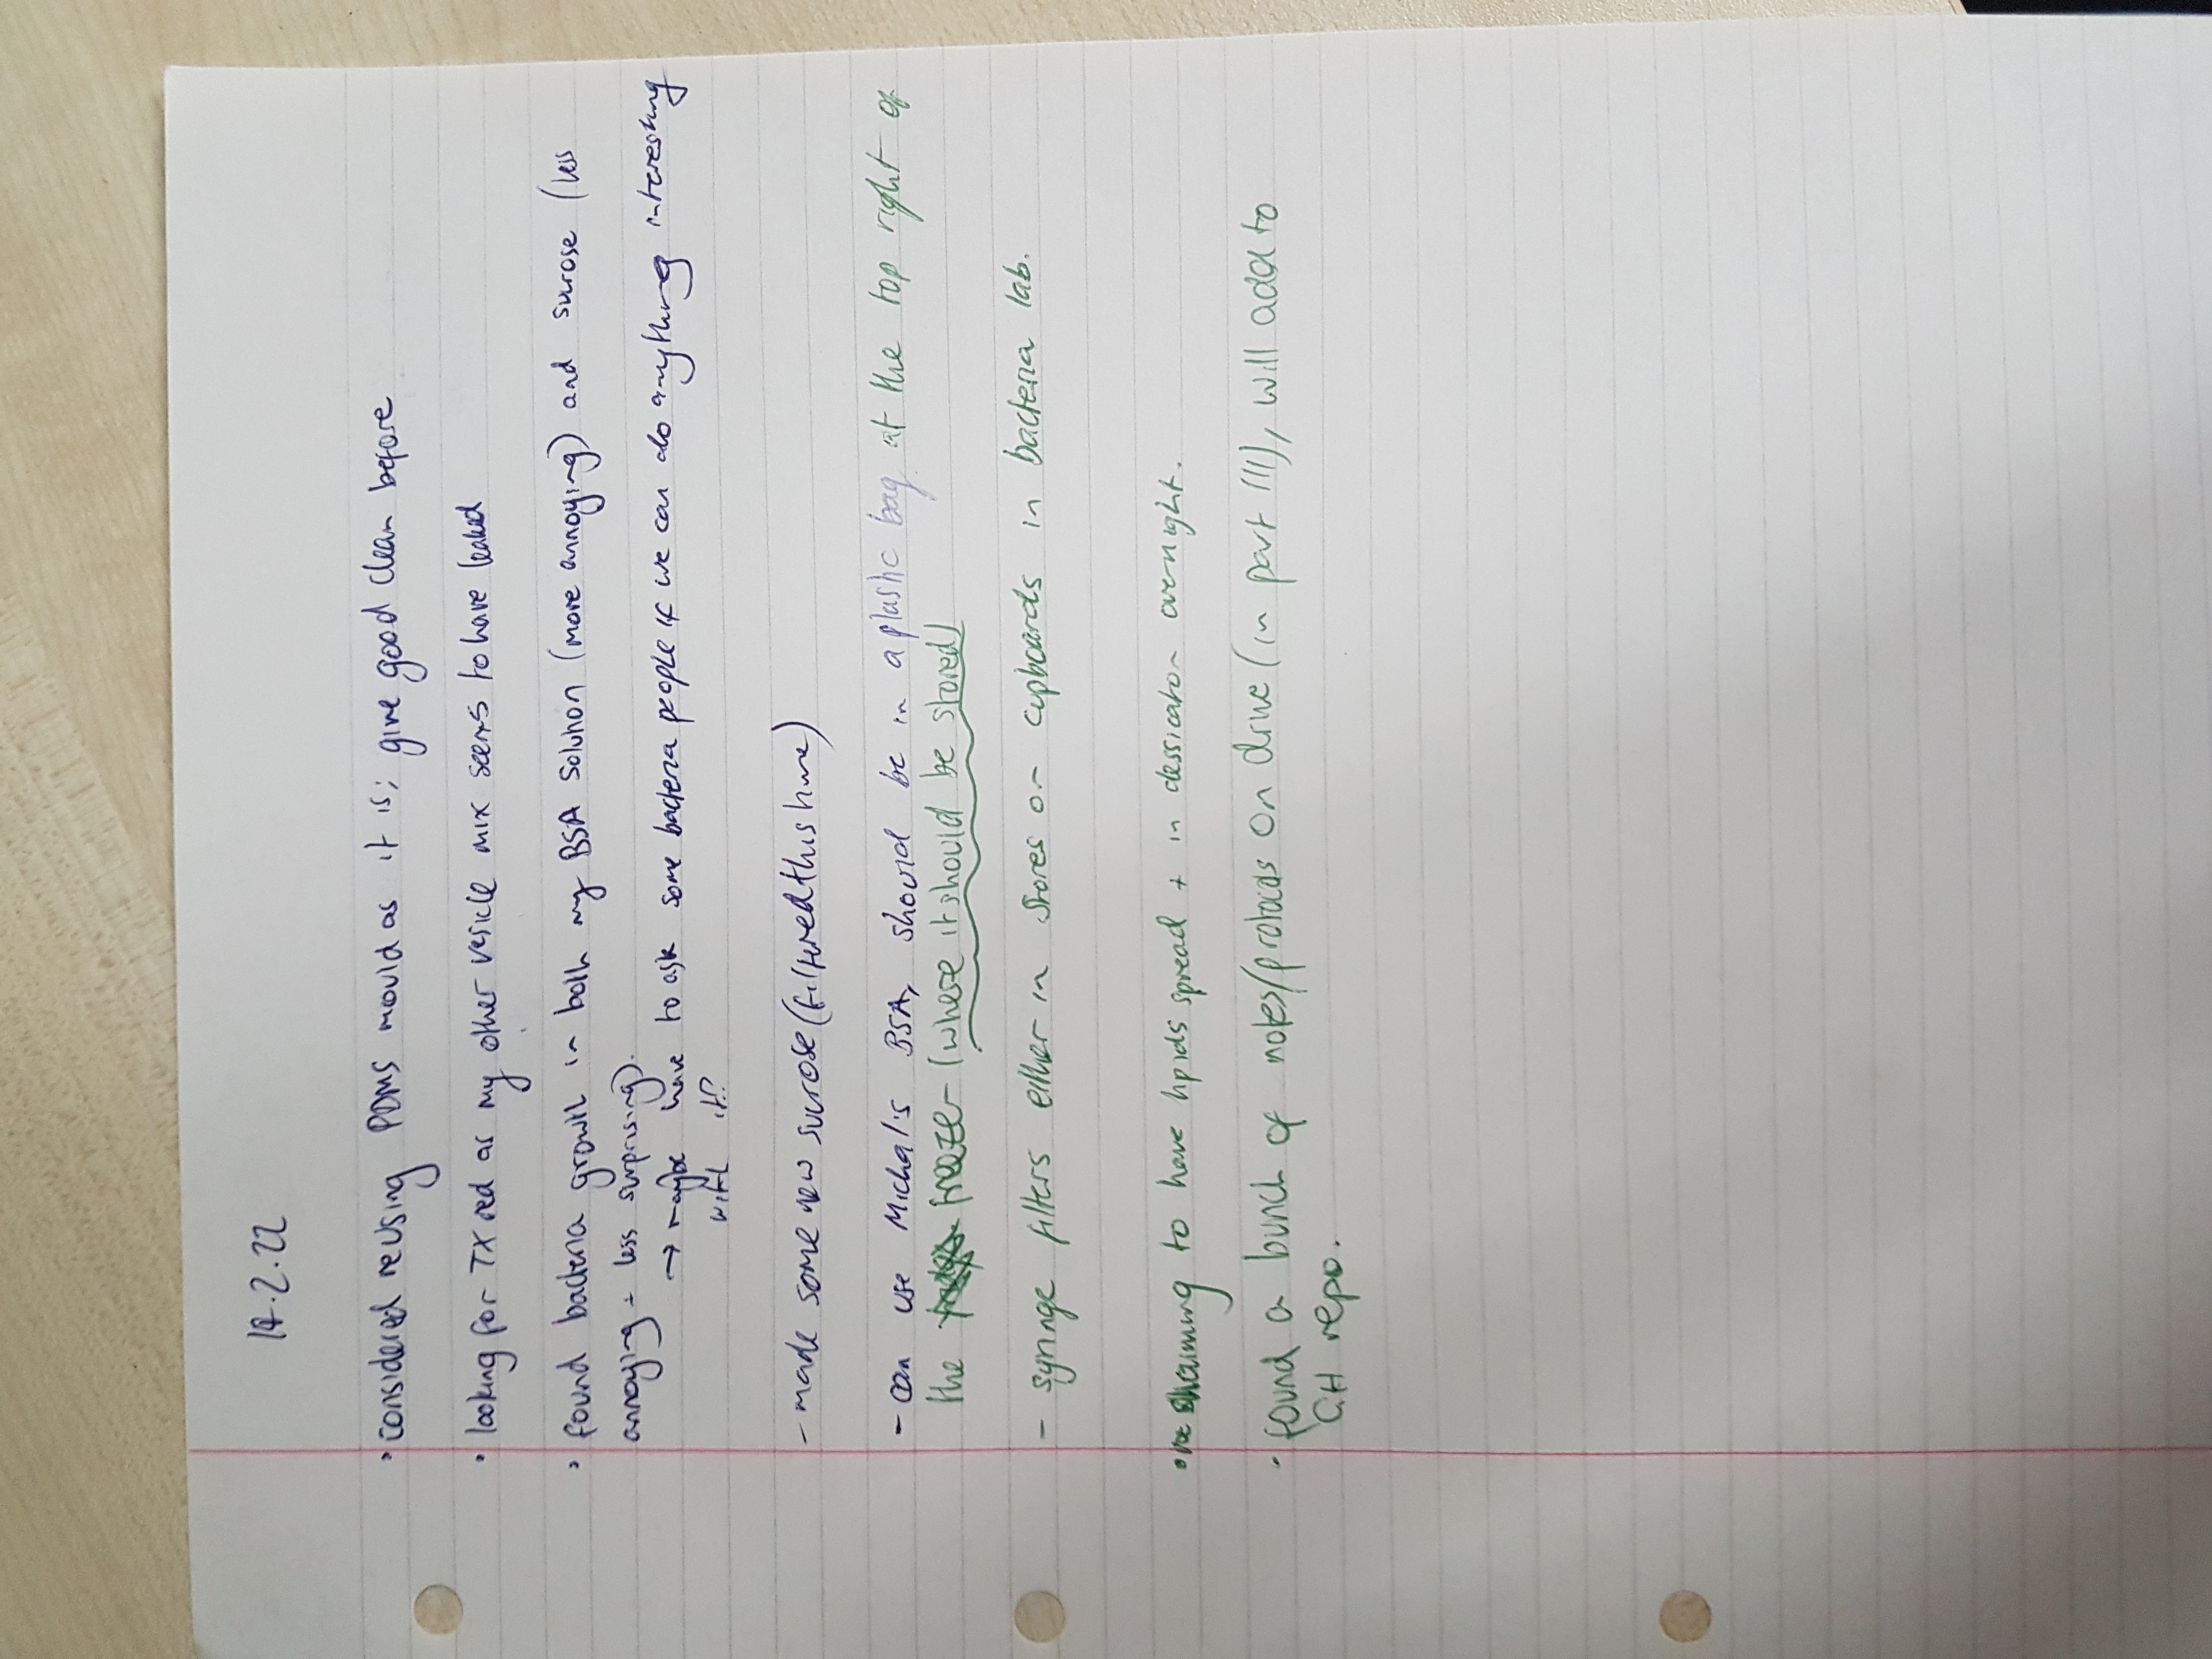 .2.22
• considered reusing PDMS mould as it is; give good clean before
• looking for TX red as my other vesicle mix seems to have leaked
• found bacteria growth in both my BSA solution (more annoying) and sucrose (less
annoying + less surprising).
→ maybe have to ask some bacteria people if we can do anything interesting
with it!?
- made some new sucrose (filtered this time)
- can use Michal's BSA, should be in a plastic bag at the top right of
the freezer (where it should be stored)
- syringe filters either in stores or cupboards in bacteria lab.
• aiming to have lipids spread + in dessicator overnight.
• found a bunch of notes/protocols on drive (in part III), will add to
GH repo.